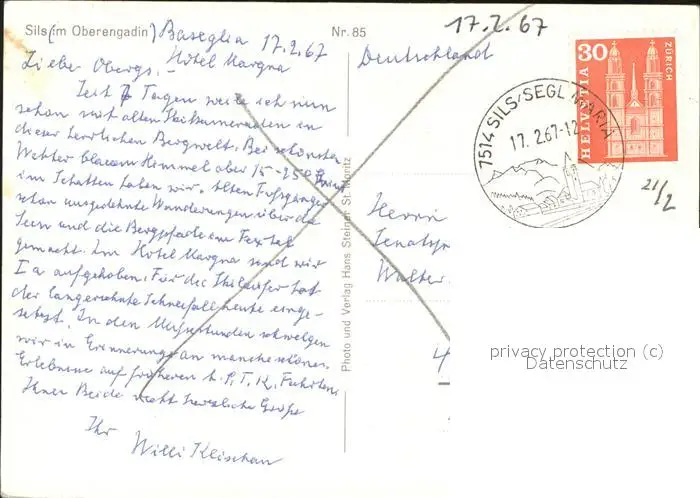 Sils (im Oberengadin) Baseglia 17.2.67
Nr. 85
Hotel Margna
Liebe Obergs, -
Seit 7 Tagen weile ich nun
schon mit alten Skikameraden in
dieser herrlichen Bergwelt. Bei schönstem
Wetter blauem Himmel aber 15-25°
im Schatten haben wir alten Fussgänger
schon ausgedehnte Wanderungen über die
Seen und die Bergpfade am Fextal
gemacht. Im Hotel Margna sind wir
Ia aufgehoben. Für die Skiläufer hat
der langersehnte Schneefall heute einge-
setzt. In den Mussestunden schwelgen
wir in Erinnerungen an manche schönen
Erlebnisse auf früheren Fahrten.
Ihnen Beide recht herzliche Grüße
Ihr
Willi Klischan
Photo und Verlag Hans Steiner St. Moritz
17.2.67
Deutschland
HELVETIA
30
ZÜRICH
7514 SILS/SEGL MARIA
17.2.67-12
21/2
Herrn
Walter
4
privacy protection (c)
Datenschutz